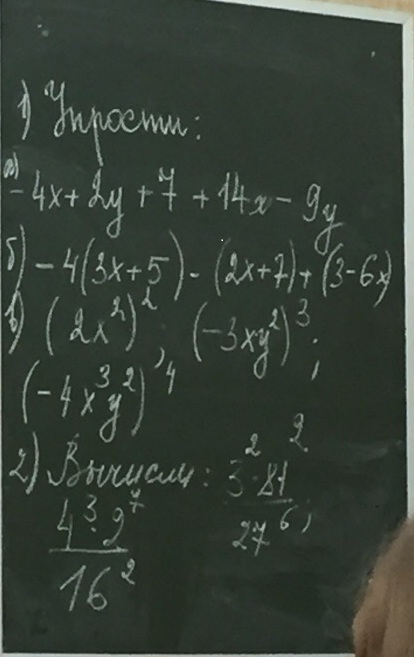 1) Упрости:
а) -4x+2y+7+14x-9y
б) -4(3x+5)-(2x+7)+(3-6x)
в) (2x²)², (-3xy²)³;
(-4x³y²)⁴
2) Вычисли: 3²·81²/27⁶;
4³·2⁷/16²